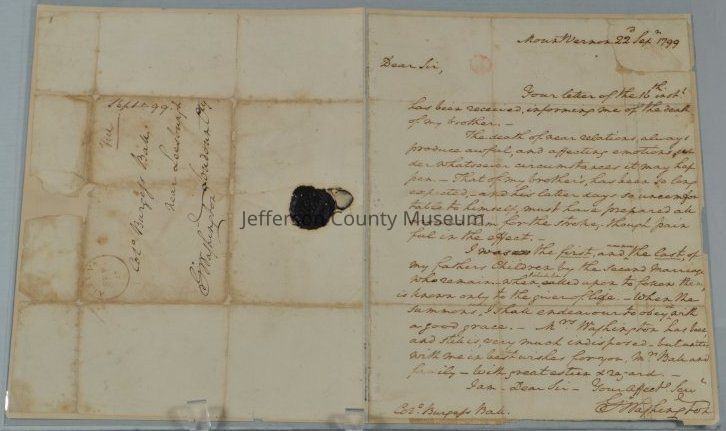 Mount Vernon 22d Sepr 1799
Dear Sir,
Your letter of the 16th instt
has been received, informing me of the death
of my brother. —
The death of near relations, always
produce awful, and affecting emotions, un
der whatsoever circumstances it may hap
pen — That of my brother's, has been so long
expected, and his latter days so uncomfor
table to himself, must have prepared all
them for the stroke, though pain
ful in the effect. —
I was the first, and now the last, of
my fathers Children by the second Marriage
who remain. — when I shall be called upon to follow them,
is known only to the giver of life. — When the
summons, I shall endeavour to obey, with
a good grace. — Mrs Washington has been,
and still is, very much indisposed — but unites
with me in best wishes for you, Mrs Ball and
family — With great esteem & regard —
I am — Dear Sir — Your Affecte Servt
Go Washington
Colo Burgess Ball.
Sept 99
Free
Colo Burgess Ball
near Leesburgh
Loudoun Cty
Go Washington
Jefferson County Museum